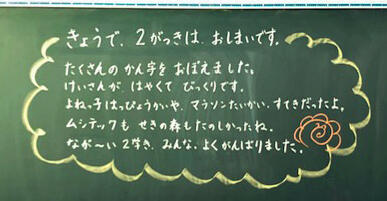 きょうで、2がっきは、おしまいです。
たくさんの かん字を おぼえました。
けいさんが はやくて びっくりです。
よねっ子はっぴょうかいや、マラソンたいかい、すてきだったよ。
ムシテックも せきの森も たのしかったね。
なが〜い 2学き、みんな、よくがんばりました。